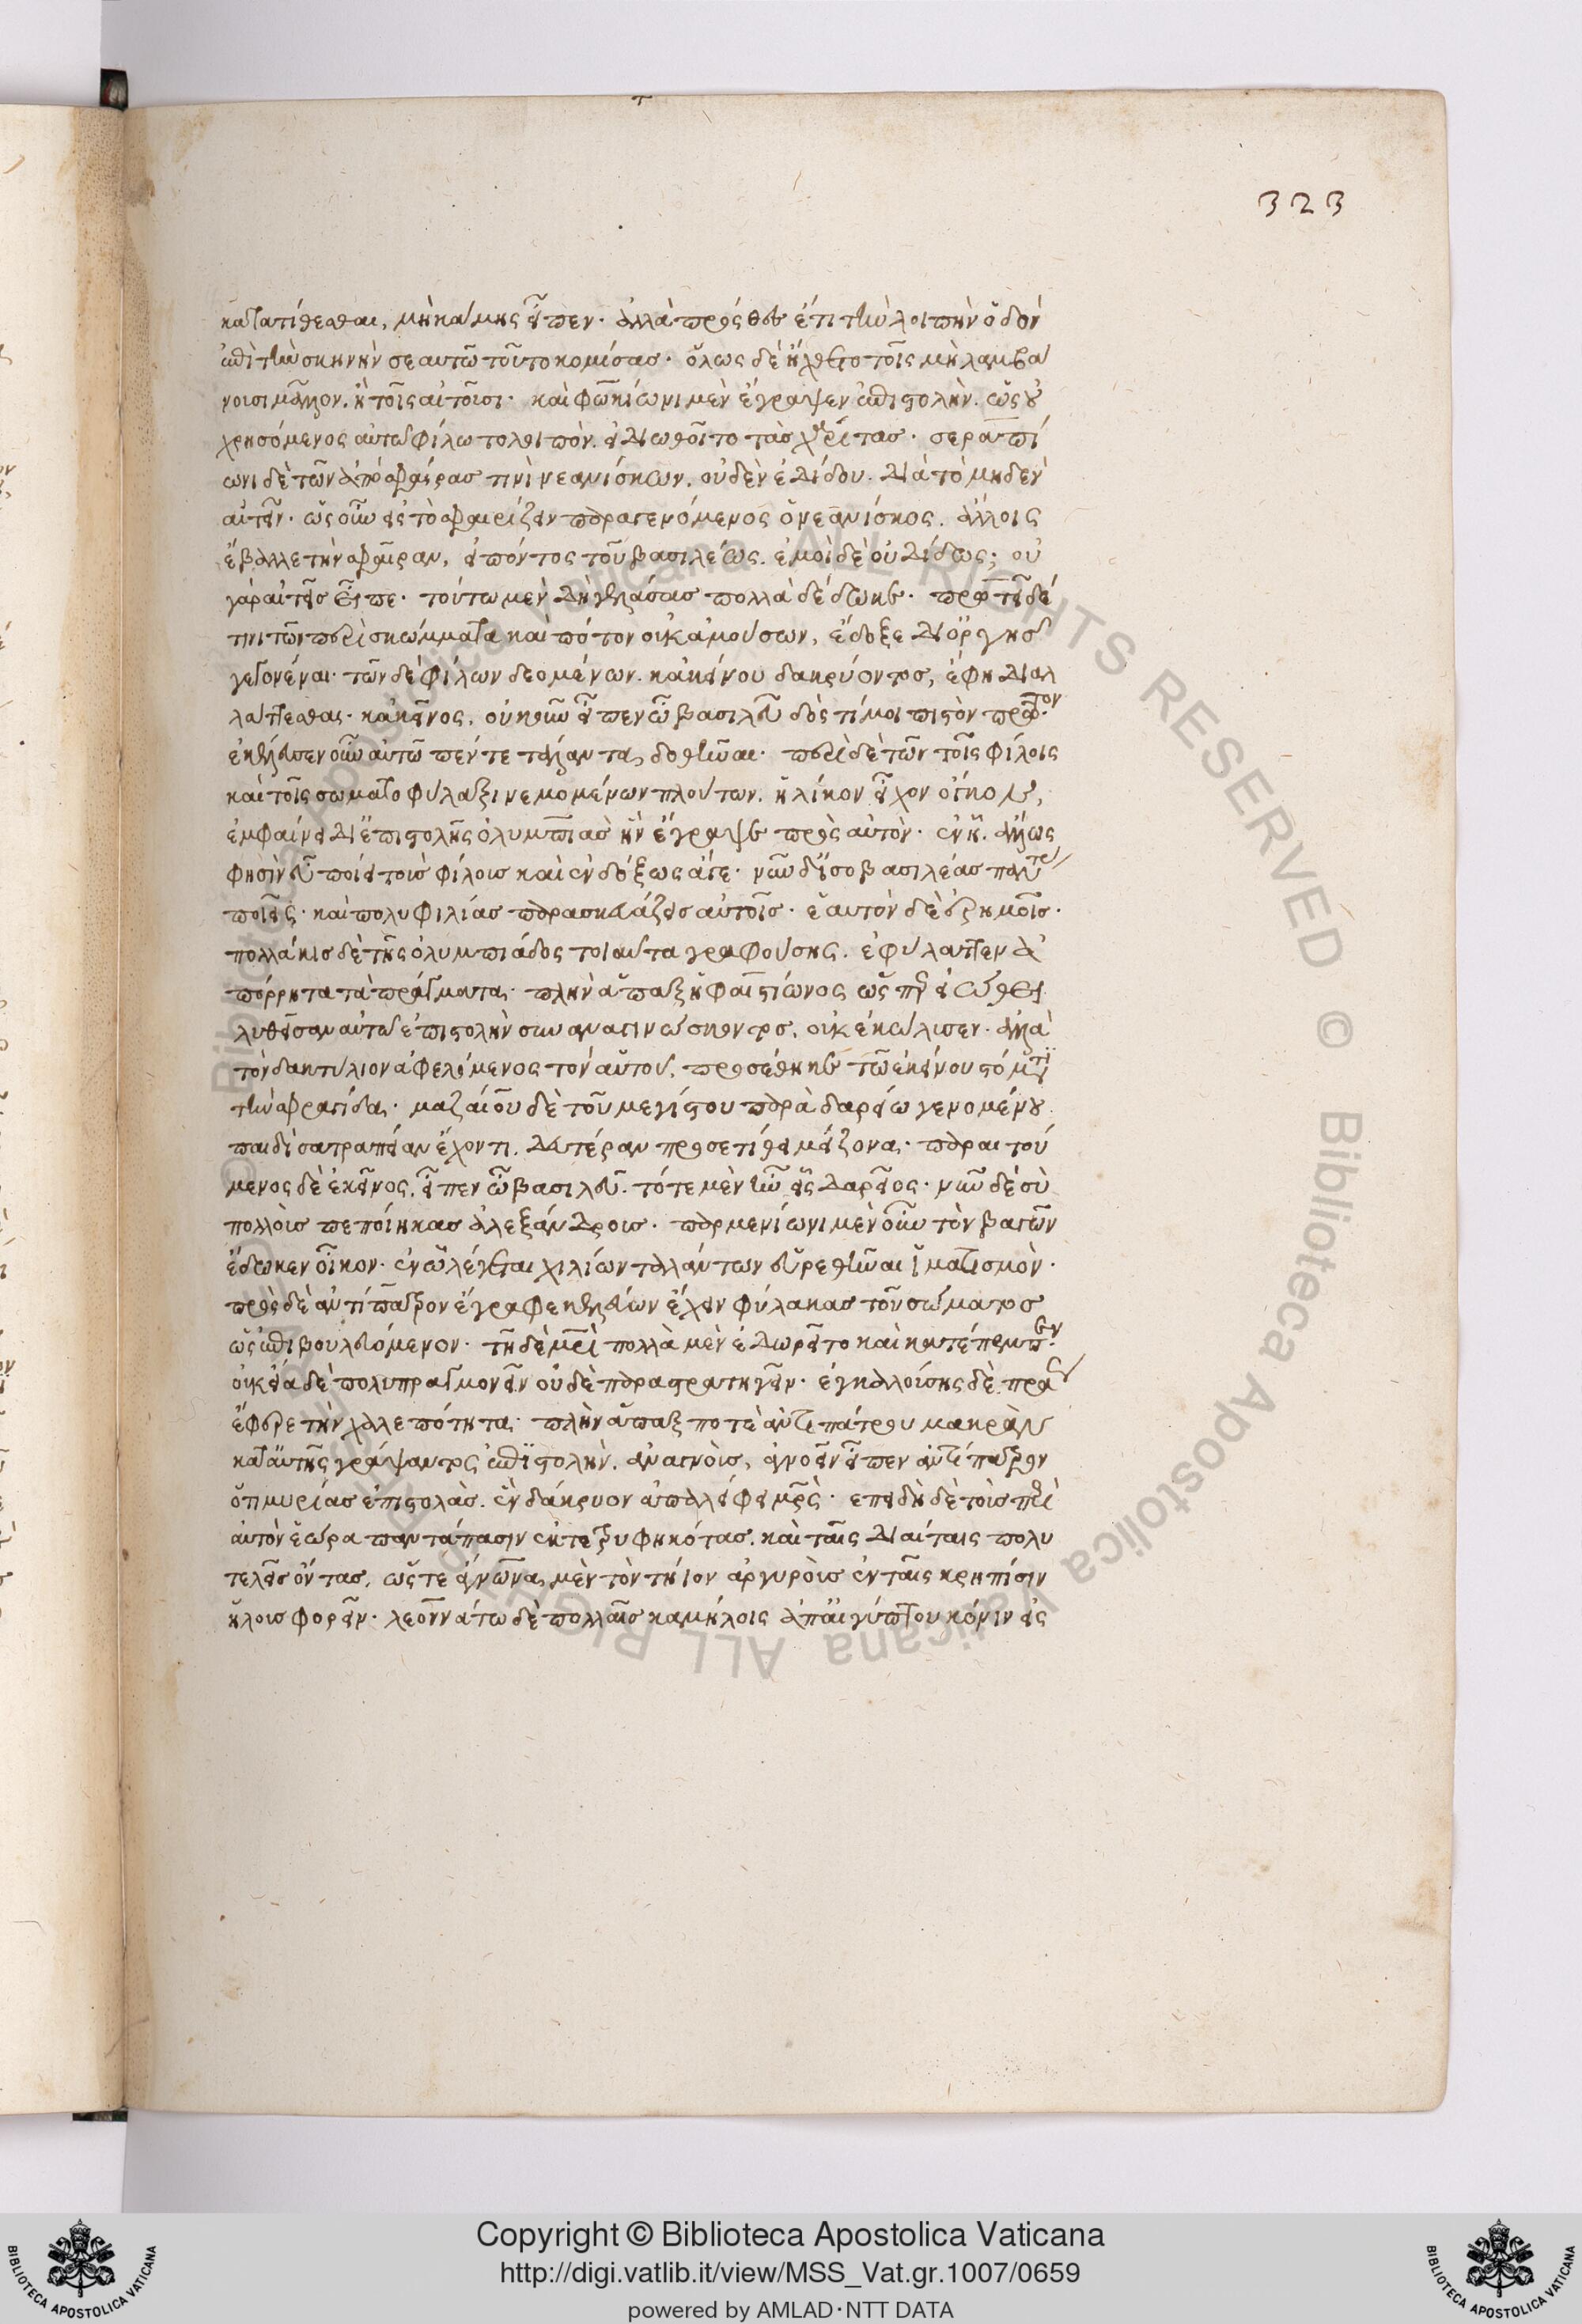 323
κατατίθεσθαι, μὴ κάμῃς εἶπεν· ἀλλὰ πρόσθες ἔτι τὴν λοιπὴν ὁδὸν
ἐπὶ τὴν σκηνήν σεαυτῶ τοῦτο κομίσας· ὅλως δὲ ἤχθετο τοῖς μὴ λαμβά
νουσι μᾶλλον. ἢ τοῖς αἰτοῦσι· καὶ φωκίωνι μὲν ἔγραψεν ἐπιστολὴν. ὡς οὐ
χρησόμενος αὐτῶ φίλω τολοιπὸν. εἰ διωθοῖτο τὰς χάριτας· σεραπί
ωνι δὲ τῶν ἀπὸ σφαίρας τινὶ νεανίσκων, οὐδὲν ἐδίδου. διὰ τὸ μηδὲν
αἰτεῖν· ὡς οὖν εἰς τὸ σφαιρίζειν παραγενόμενος ὁ νεανίσκος. ἄλλοις
ἔβαλλε τὴν σφαῖραν, εἰπόντος τοῦ βασιλέως. ἐμοὶ δὲ οὐ δίδως; οὐ
γὰρ αἰτεῖς εἶπε· τούτω μὲν δὴ γελάσας πολλὰ δέδωκε· πρωτεῖ δέ
τινι τῶν περὶ σκώμματα καὶ πότον οὐκ ἀμούσων, ἔδοξε δι ὀργῆς
γεγονέναι· τῶν δὲ φίλων δεομένων. κἀκείνου δακρύοντος, ἔφη διαλ
λάττεσθαι· κἀκεῖνος, οὐκοῦν εἶπεν ὦ βασιλεῦ δός τί μοι πιστὸν πρῶτον·
ἐκέλευσεν οὖν αὐτῶ πέντε τάλαντα δοθῆναι· περὶ δὲ τῶν τοῖς φίλοις
καὶ τοῖς σωματοφύλαξι νεμομένων πλούτων. ἡλίκον εἶχον ὄγκον,
ἐμφαίνει δι ἐπιστολῆς ὀλυμπιὰς ἣν ἔγραψε πρὸς αὐτὸν· ἐν ᾗ. ἄλλως
φησὶν εὖ ποίει τοὺς φίλους καὶ ἐνδόξως ἄγε· νῦν δ' ἰσοβασιλέας πάντας
ποιεῖς· καὶ πολυφιλίας παρασκευάζεις αὐτοῖς· ἑαυτὸν δὲ ἐρημοῖς·
πολλάκις δὲ τῆς ὀλυμπιάδος τοιαῦτα γραφούσης. ἐφύλαττεν ἀ
πόρρητα τὰ πράγματα· πλὴν ἅπαξ ἡφαιστίωνος ὥσπερ εἰώθει
λυθεῖσαν αὐτῶ ἐπιστολὴν συναναγινώσκοντος. οὐκ ἐκώλυσεν. ἀλλὰ
τὸν δακτύλιον ἀφελόμενος τὸν αὑτοῦ, προσέθηκε τῶ ἐκείνου στόματι
τὴν σφραγίδα· μαζαίου δὲ τοῦ μεγίστου παρὰ δαρείω γενομένου
παιδὶ σατραπείαν ἔχοντι. δευτέραν προσετίθει μείζονα· παραιτού
μενος δὲ ἐκεῖνος. εἶπεν ὦ βασιλεῦ. τότε μὲν ἦν εἷς δαρεῖος· νῦν δὲ σὺ
πολλοὺς πεποίηκας ἀλεξάνδρους· παρμενίωνι μὲν οὖν τὸν βαγώου
ἔδωκεν οἶκον· ἐν ὧ λέγεται χιλίων ταλάντων εὑρεθῆναι ἱματισμὸν·
πρὸς δὲ ἀντίπατρον ἔγραφε κελεύων ἔχειν φύλακας τοῦ σώματος
ὡς ἐπιβουλευόμενον· τῆ δὲ μητρὶ πολλὰ μὲν ἐδωρεῖτο καὶ κατέπεμπεν·
οὐκ εἴα δὲ πολυπραγμονεῖν οὐδὲ παραστρατηγεῖν· ἐγκαλούσης δὲ πράως
ἔφερε τὴν χαλεπότητα· πλὴν ἅπαξ ποτὲ ἀντιπάτρου μακρὰν
κατ' αὐτῆς γράψαντος ἐπιστολὴν. ἀναγνοὺς, ἀγνοεῖν εἶπεν ἀντίπατρον
ὅτι μυρίας ἐπιστολὰς. ἓν δάκρυον ἀπαλείφει μητρὸς· ἐπεὶ δὴ δὲ τοὺς περὶ
αὐτὸν ἑώρα παντάπασιν ἐκτετρυφηκότας. καὶ ταῖς διαίταις πολυ
τελεῖς ὄντας, ὥστε ἅγνωνα μὲν τὸν τήιον ἀργυροὺς ἐν ταῖς κρηπῖσιν
ἥλους φορεῖν· λεοννάτω δὲ πολλαῖς καμήλοις ἀπ' αἰγύπτου κόνιν εἰς
© Biblioteca Apostolica Vaticana ALL RIGHTS RESERVED © Biblioteca Apostolica Vaticana ALL RIGHTS RESERVED
Copyright © Biblioteca Apostolica Vaticana
http://digi.vatlib.it/view/MSS_Vat.gr.1007/0659
powered by AMLAD·NTT DATA
BIBLIOTECA APOSTOLICA VATICANA
BIBLIOTECA APOSTOLICA VATICANA